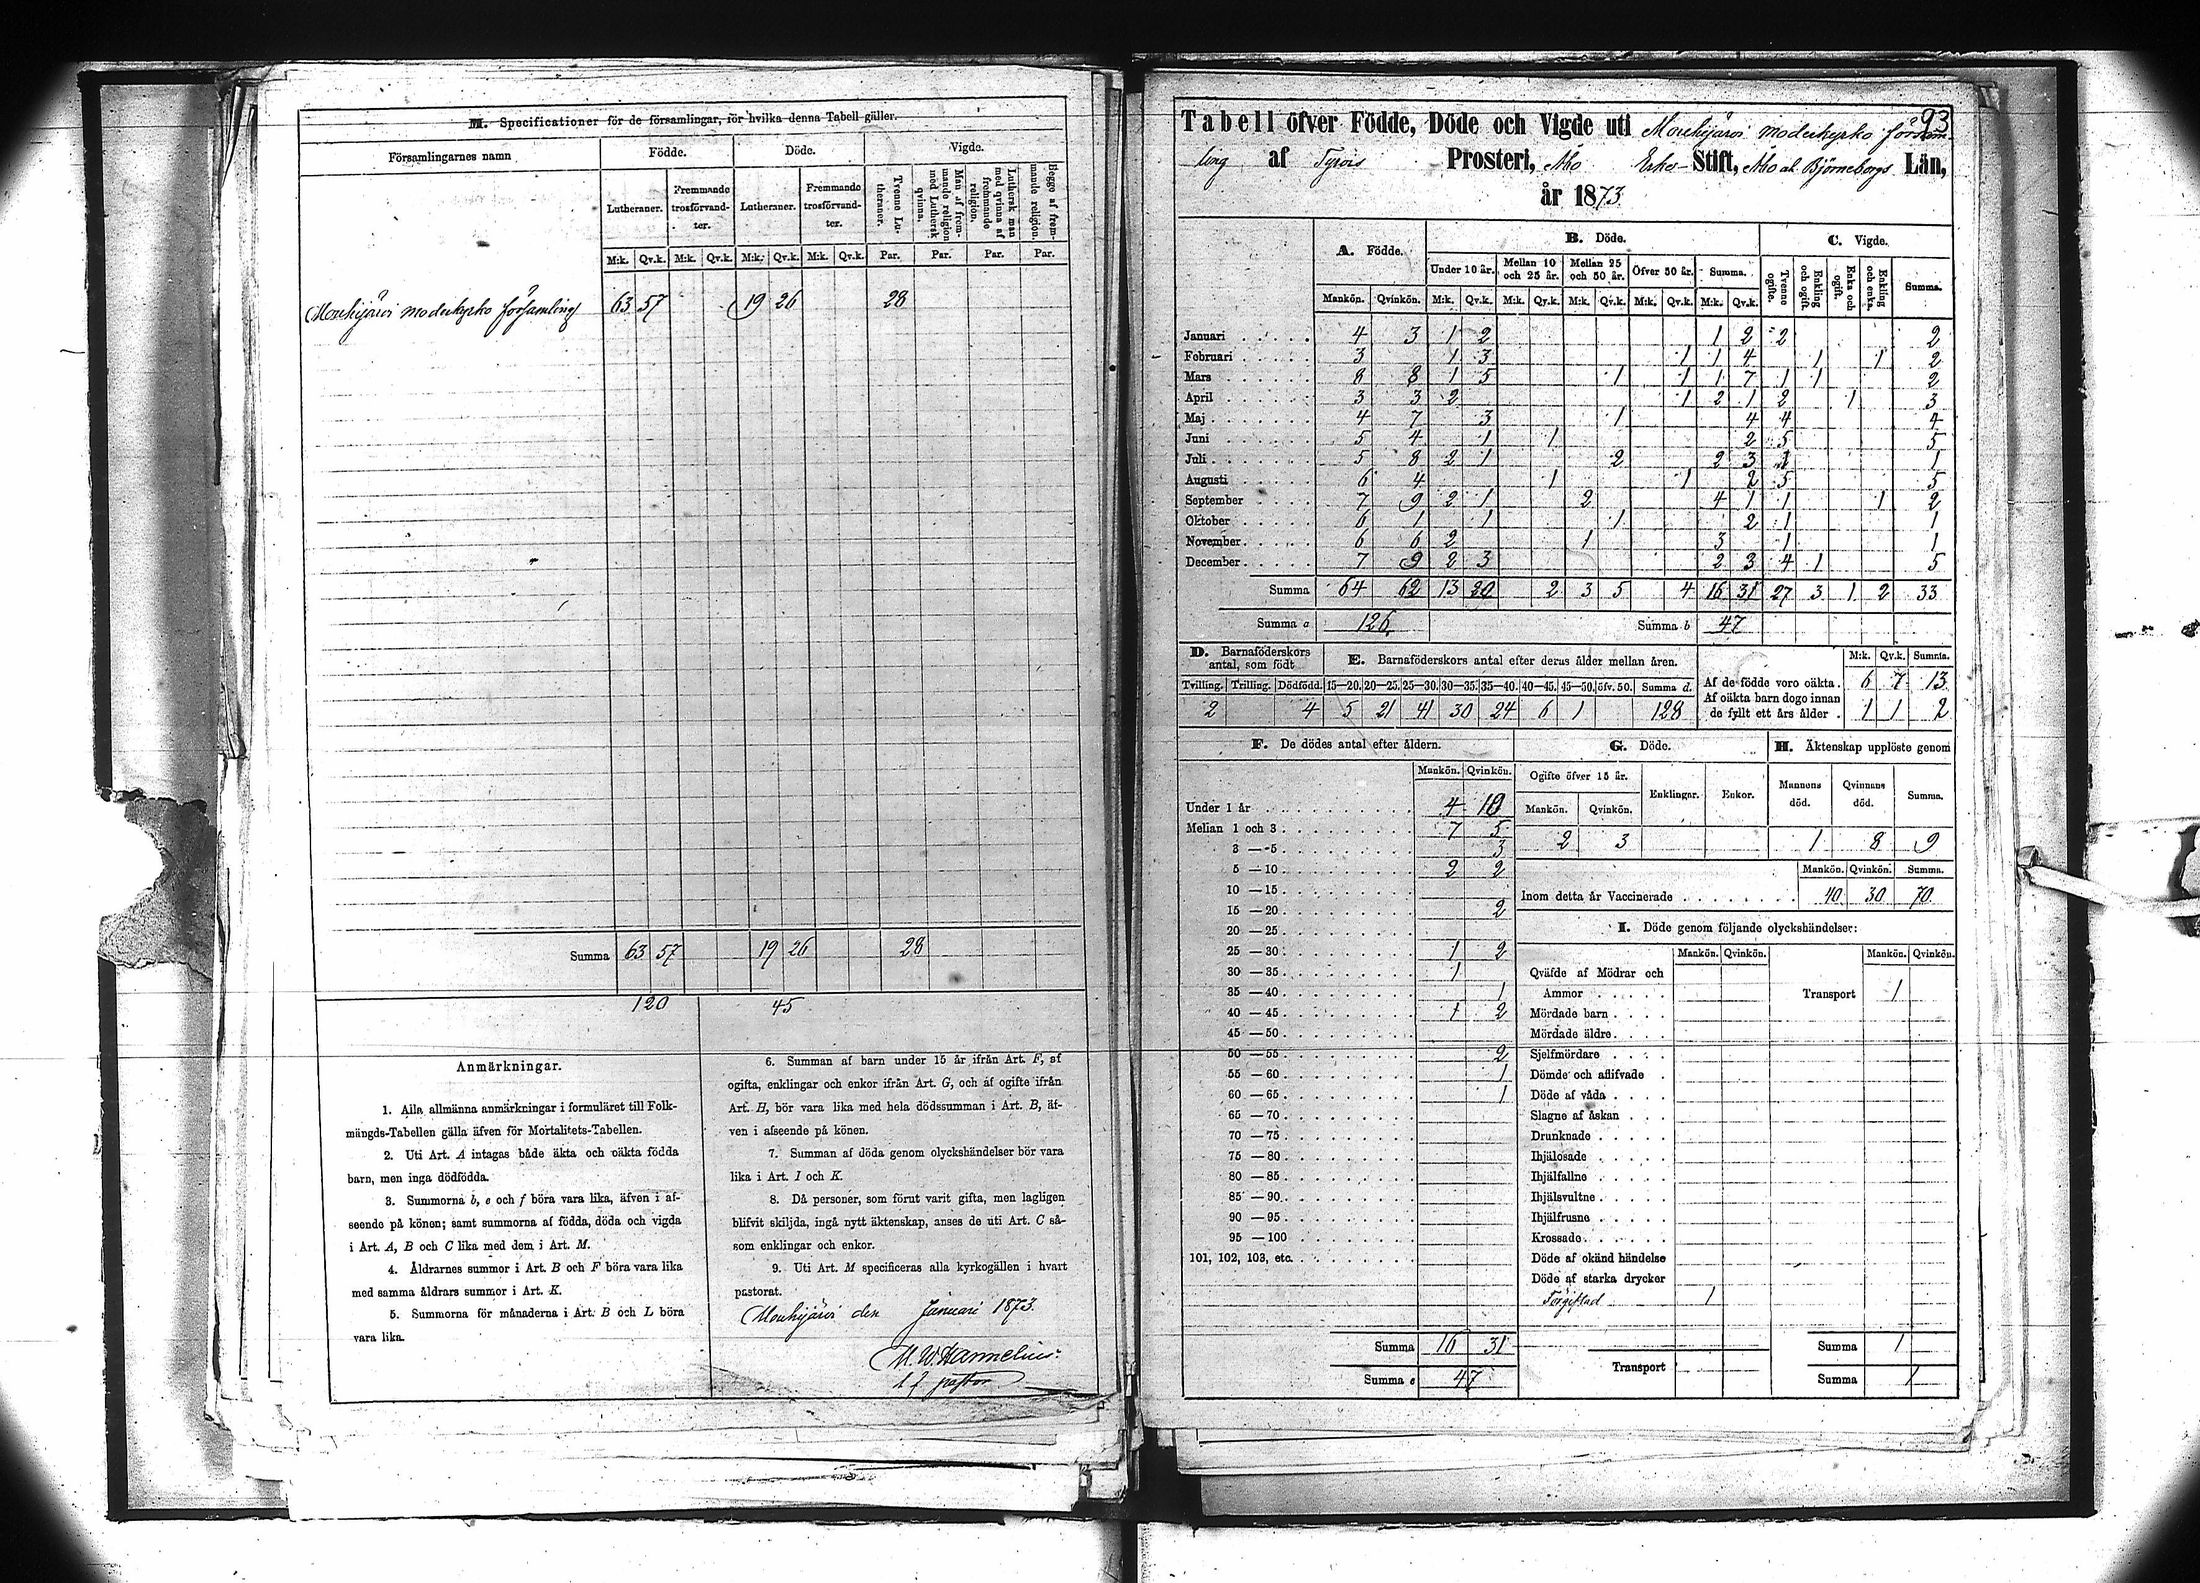 M. Specificationer för de församlingar, för hvilka denna Tabell gäller.
Församlingarnes namn Födde. Döde. Vigde.
Lutheraner. Fremmande trosförvandter. Lutheraner. Fremmande trosförvandter. Tvenne Lutheraner. Man af frommande religion med Luthersk qvinna. Luthersk man med qvinna af fremmande religion. Begge af fremmande religion.
M:k. Qv.k. M:k. Qv.k. M:k. Qv.k. M:k. Qv.k. Par. Par. Par. Par.
Mouhijärvi moderkyrko församling 63 57 19 26 28
Summa 63 57 19 26 28
120 45
Anmärkningar.
1. Alla allmänna anmärkningar i formuläret till Folk-
mängds-Tabellen gälla äfven för Mortalitets-Tabellen.
2. Uti Art. A intagas både äkta och oäkta födda
barn, men inga dödfödda.
3. Summorna b, e och f böra vara lika, äfven i af-
seende på könen; samt summorna af födda, döda och vigda
i Art. A, B och C lika med dem i Art. M.
4. Åldrarnes summor i Art. B och F böra vara lika
med samma åldrars summor i Art. K.
5. Summorna för månaderna i Art. B och L böra
vara lika.
6. Summan af barn under 15 år ifrån Art. F, af
ogifta, enklingar och enkor ifrån Art. G, och af ogifte ifrån
Art. H, bör vara lika med hela dödssumman i Art. B, äf-
ven i afseende på könen.
7. Summan af döda genom olyckshändelser bör vara
lika i Art. I och K.
8. Då personer, som förut varit gifta, men lagligen
blifvit skiljda, ingå nytt äktenskap, anses de uti Art. C så-
som enklingar och enkor.
9. Uti Art. M specificeras alla kyrkogällen i hvart
pastorat.
Mouhijärvi den Januari 1873.
M. W. Hannelius.
t. f. pastor
93
Tabell öfver Födde, Döde och Vigde uti Mouhijärvi moderkyrko försam-
ling af Tyrvis Prosteri, Åbo Erke- Stift, Åbo o. Björneborgs Län,
år 1873
A. Födde. B. Döde. C. Vigde.
Under 10 år. Mellan 10 och 25 år. Mellan 25 och 50 år. Öfver 50 år. Summa. Tvenne ogifte. Enkling och ogift. Enka och ogift. Enkling och enka. Summa.
Mankön. Qvinkön. M:k. Qv.k. M:k. Qv.k. M:k. Qv.k. M:k. Qv.k. M:k. Qv.k.
Januari 4 3 1 2 1 2 2 2
Februari 3 1 3 1 1 4 1 1 2
Mars 8 8 1 5 1 1 1 7 1 1 2
April 3 3 2 1 2 1 2 1 3
Maj 4 7 3 1 4 4 4
Juni 5 4 1 1 2 5 5
Juli 5 8 2 1 2 2 3 1 1
Augusti 6 4 1 1 2 5 5
September 7 9 2 1 2 4 1 1 1 2
Oktober 6 1 1 1 2 1 1
November 6 6 2 1 3 1 1
December 7 9 2 3 2 3 4 1 5
Summa 64 62 13 20 2 3 5 4 16 31 27 3 1 2 33
Summa a 126 Summa b 47
D. Barnaföderskors antal, som födt
Tvilling. Trilling. Dödfödd.
2 4
E. Barnaföderskors antal efter deras ålder mellan åren.
15—20. 20—25. 25—30. 30—35. 35—40. 40—45. 45—50. öfv. 50. Summa d.
5 21 41 30 24 6 1 128
M:k. Qv.k. Summa.
Af de födde voro oäkta. 6 7 13
Af oäkta barn dogo innan
de fyllt ett års ålder. 1 1 2
F. De dödes antal efter åldern.
Mankön. Qvinkön.
Under 1 år 4 10
Mellan 1 och 3 7 5
3 — 5 3
5 — 10 2 2
10 — 15
15 — 20 2
20 — 25
25 — 30 1 2
30 — 35 1
35 — 40 1
40 — 45 1 2
45 — 50
50 — 55 2
55 — 60 1
60 — 65 1
65 — 70
70 — 75
75 — 80
80 — 85
85 — 90
90 — 95
95 — 100
101, 102, 103, etc.
Summa 16 31
Summa e 47
G. Döde.
Ogifte öfver 15 år. Enklingar. Enkor.
Mankön. Qvinkön.
2 3
H. Äktenskap upplöste genom
Mannens död. Qvinnans död. Summa.
1 8 9
Mankön. Qvinkön. Summa.
Inom detta år Vaccinerade 40 30 70
I. Döde genom följande olyckshändelser:
Mankön. Qvinkön. Mankön. Qvinkön.
Qväfde af Mödrar och
Ammor Transport 1
Mördade barn
Mördade äldre
Sjelfmördare
Dömde och aflifvade
Döde af våda
Slagne af åskan
Drunknade
Ihjälosade
Ihjälfallne
Ihjälsvultne
Ihjälfrusne
Krossade
Döde af okänd händelse
Döde af starka drycker
Förgiftad 1
Summa 1
Transport Summa 1